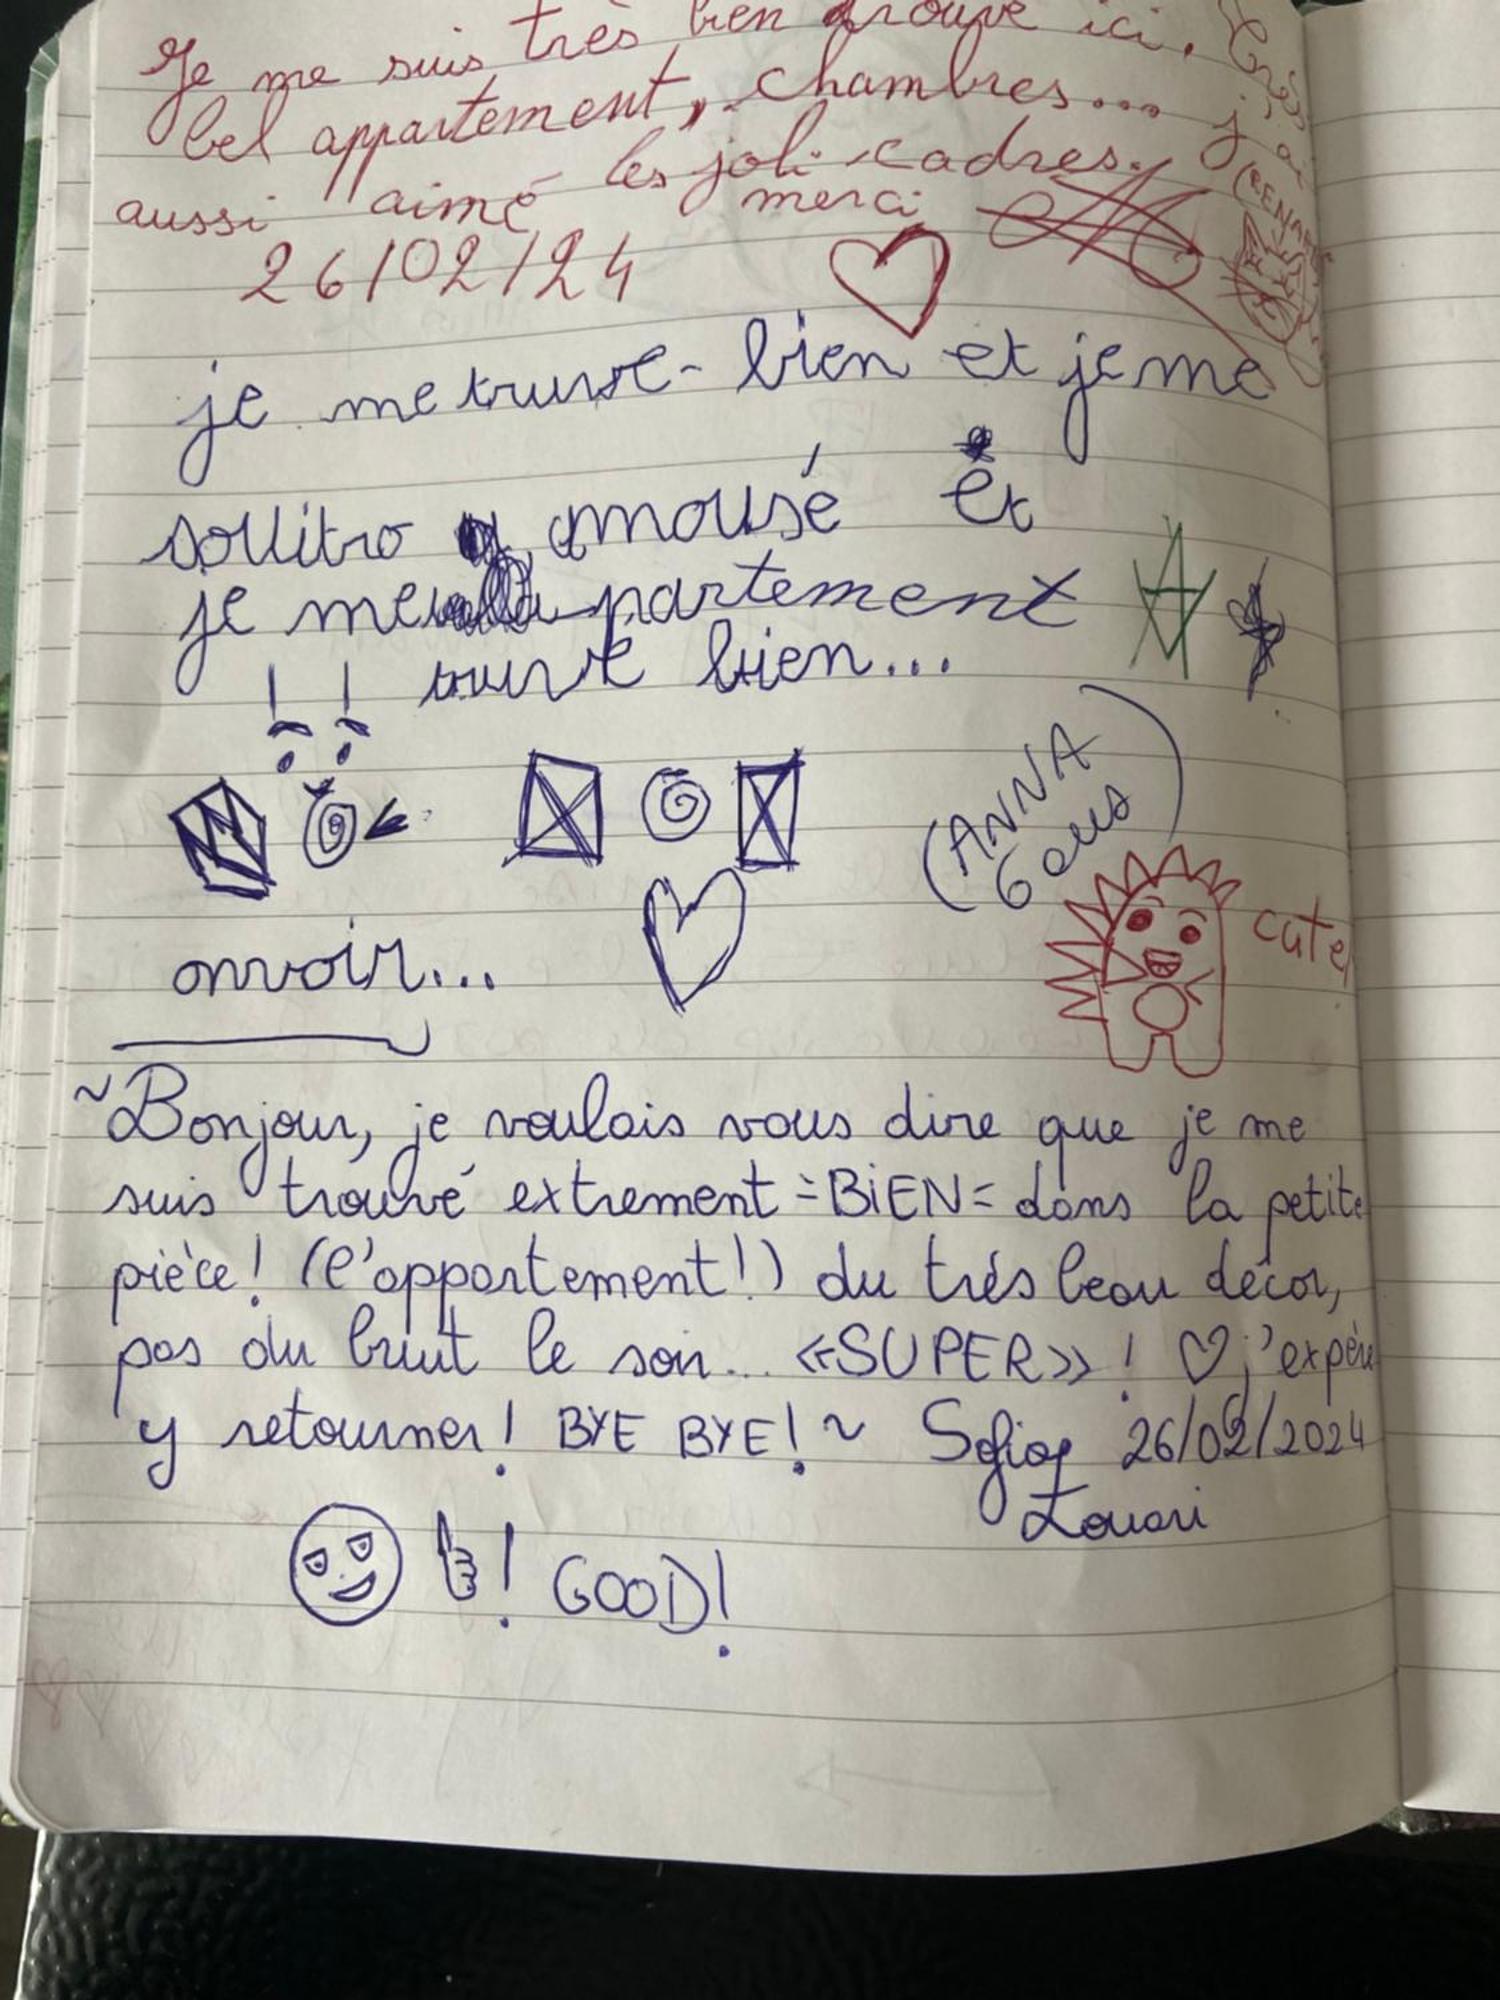 Je me suis très bien trouvé ici. Très
bel appartement, chambres... j'ai
aussi aimé les joli cadres.
merci
(RENARD
26/02/24
je me truve- bien et je me
amousé et
je me partement
truve bien...
(ANNA
6 ans)
cute
onvoir...
~Bonjour, je voulais vous dire que je me
suis trouvé extrement =BiEN= dans la petite
pièce! (l'appartement!) du trés beau décor,
pas du bruit le son... «SUPER»! ♡ j'expére
y retourner! BYE BYE! ~ Sofia 26/02/2024
Louari
! GOOD!